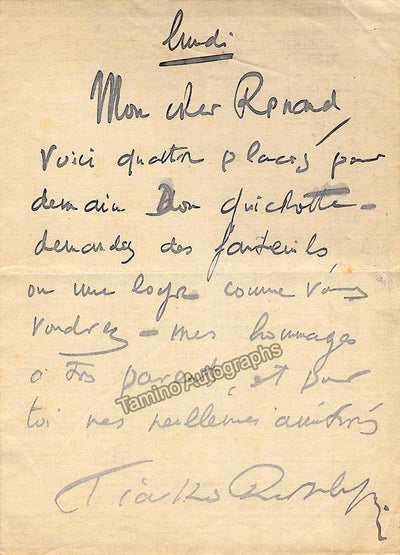 lundi
Mon cher Renard
Voici quatre places pour
demain Don Quichotte -
demandez des fauteuils
ou une loge comme vous
voudrez - mes hommages
à tes parents, et pour
toi mes meilleures amitiés
Tamino Autographs